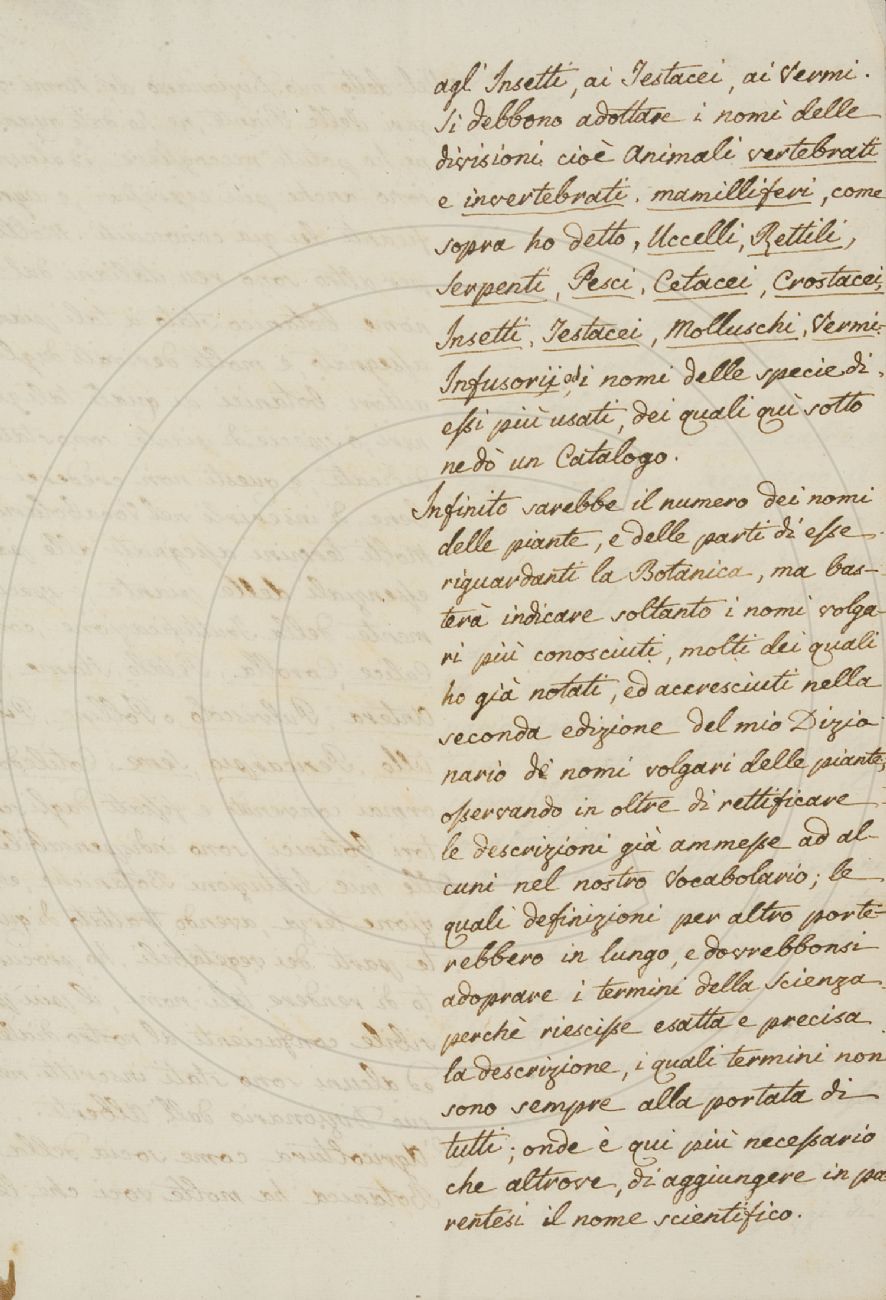 agl' Insetti, ai Testacei, ai Vermi.
Si debbono adottare i nomi delle
divisioni cioè Animali vertebrati
e invertebrati. mamilliferi, come
sopra ho detto, Uccelli, Rettili,
Serpenti, Pesci, Cetacei, Crostacei,
Insetti, Testacei, Molluschi, Vermi,
Infusorij, ed i nomi delle specie di
essi più usati, dei quali quì sotto
ne dò un Catalogo.
Infinito sarebbe il numero dei nomi
delle piante, e delle parti di esse
riguardanti la Botanica, ma bas-
terà indicare soltanto i nomi volga-
ri più conosciuti, molti dei quali
ho già notati, ed accresciuti nella
seconda edizione del mio Dizio-
nario de' nomi volgari delle piante,
osservando in oltre di rettificare
le descrizioni già ammesse ad al-
cuni nel nostro Vocabolario; le
quali definizioni per altro porte-
rebbero in lungo, e dovrebbonsi
adoprare i termini della Scienza
perchè riescisse esatta e precisa
la descrizione, i quali termini non
sono sempre alla portata di
tutti; onde è qui più necessario
che altrove, di aggiungere in pa
rentesi il nome scientifico.